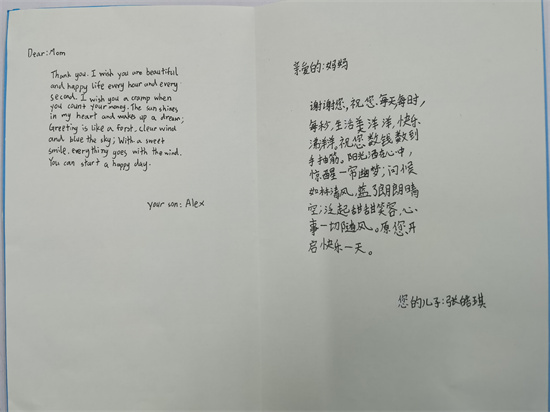 Dear: Mom
Thank you. I wish you are beautiful
and happy life every hour and every
second. I wish you a cramp when
you count your money. The sun shines
in my heart and wakes up a dream;
Greeting is like a forst, clear wind
and blue the sky; With a sweet
smile, everything goes with the wind.
You can start a happy day.
your son: Alex
亲爱的:妈妈
谢谢您,祝您每天每时,
每秒,生活美洋洋,快乐
满洋洋。祝您数钱数到
手抽筋。阳光洒在心中,
惊醒一帘幽梦;问候
如林清风,蓝了朗朗晴
空;泛起甜甜笑容,心
事一切随风。原您开
启快乐一天。
您的儿子:张皓琪